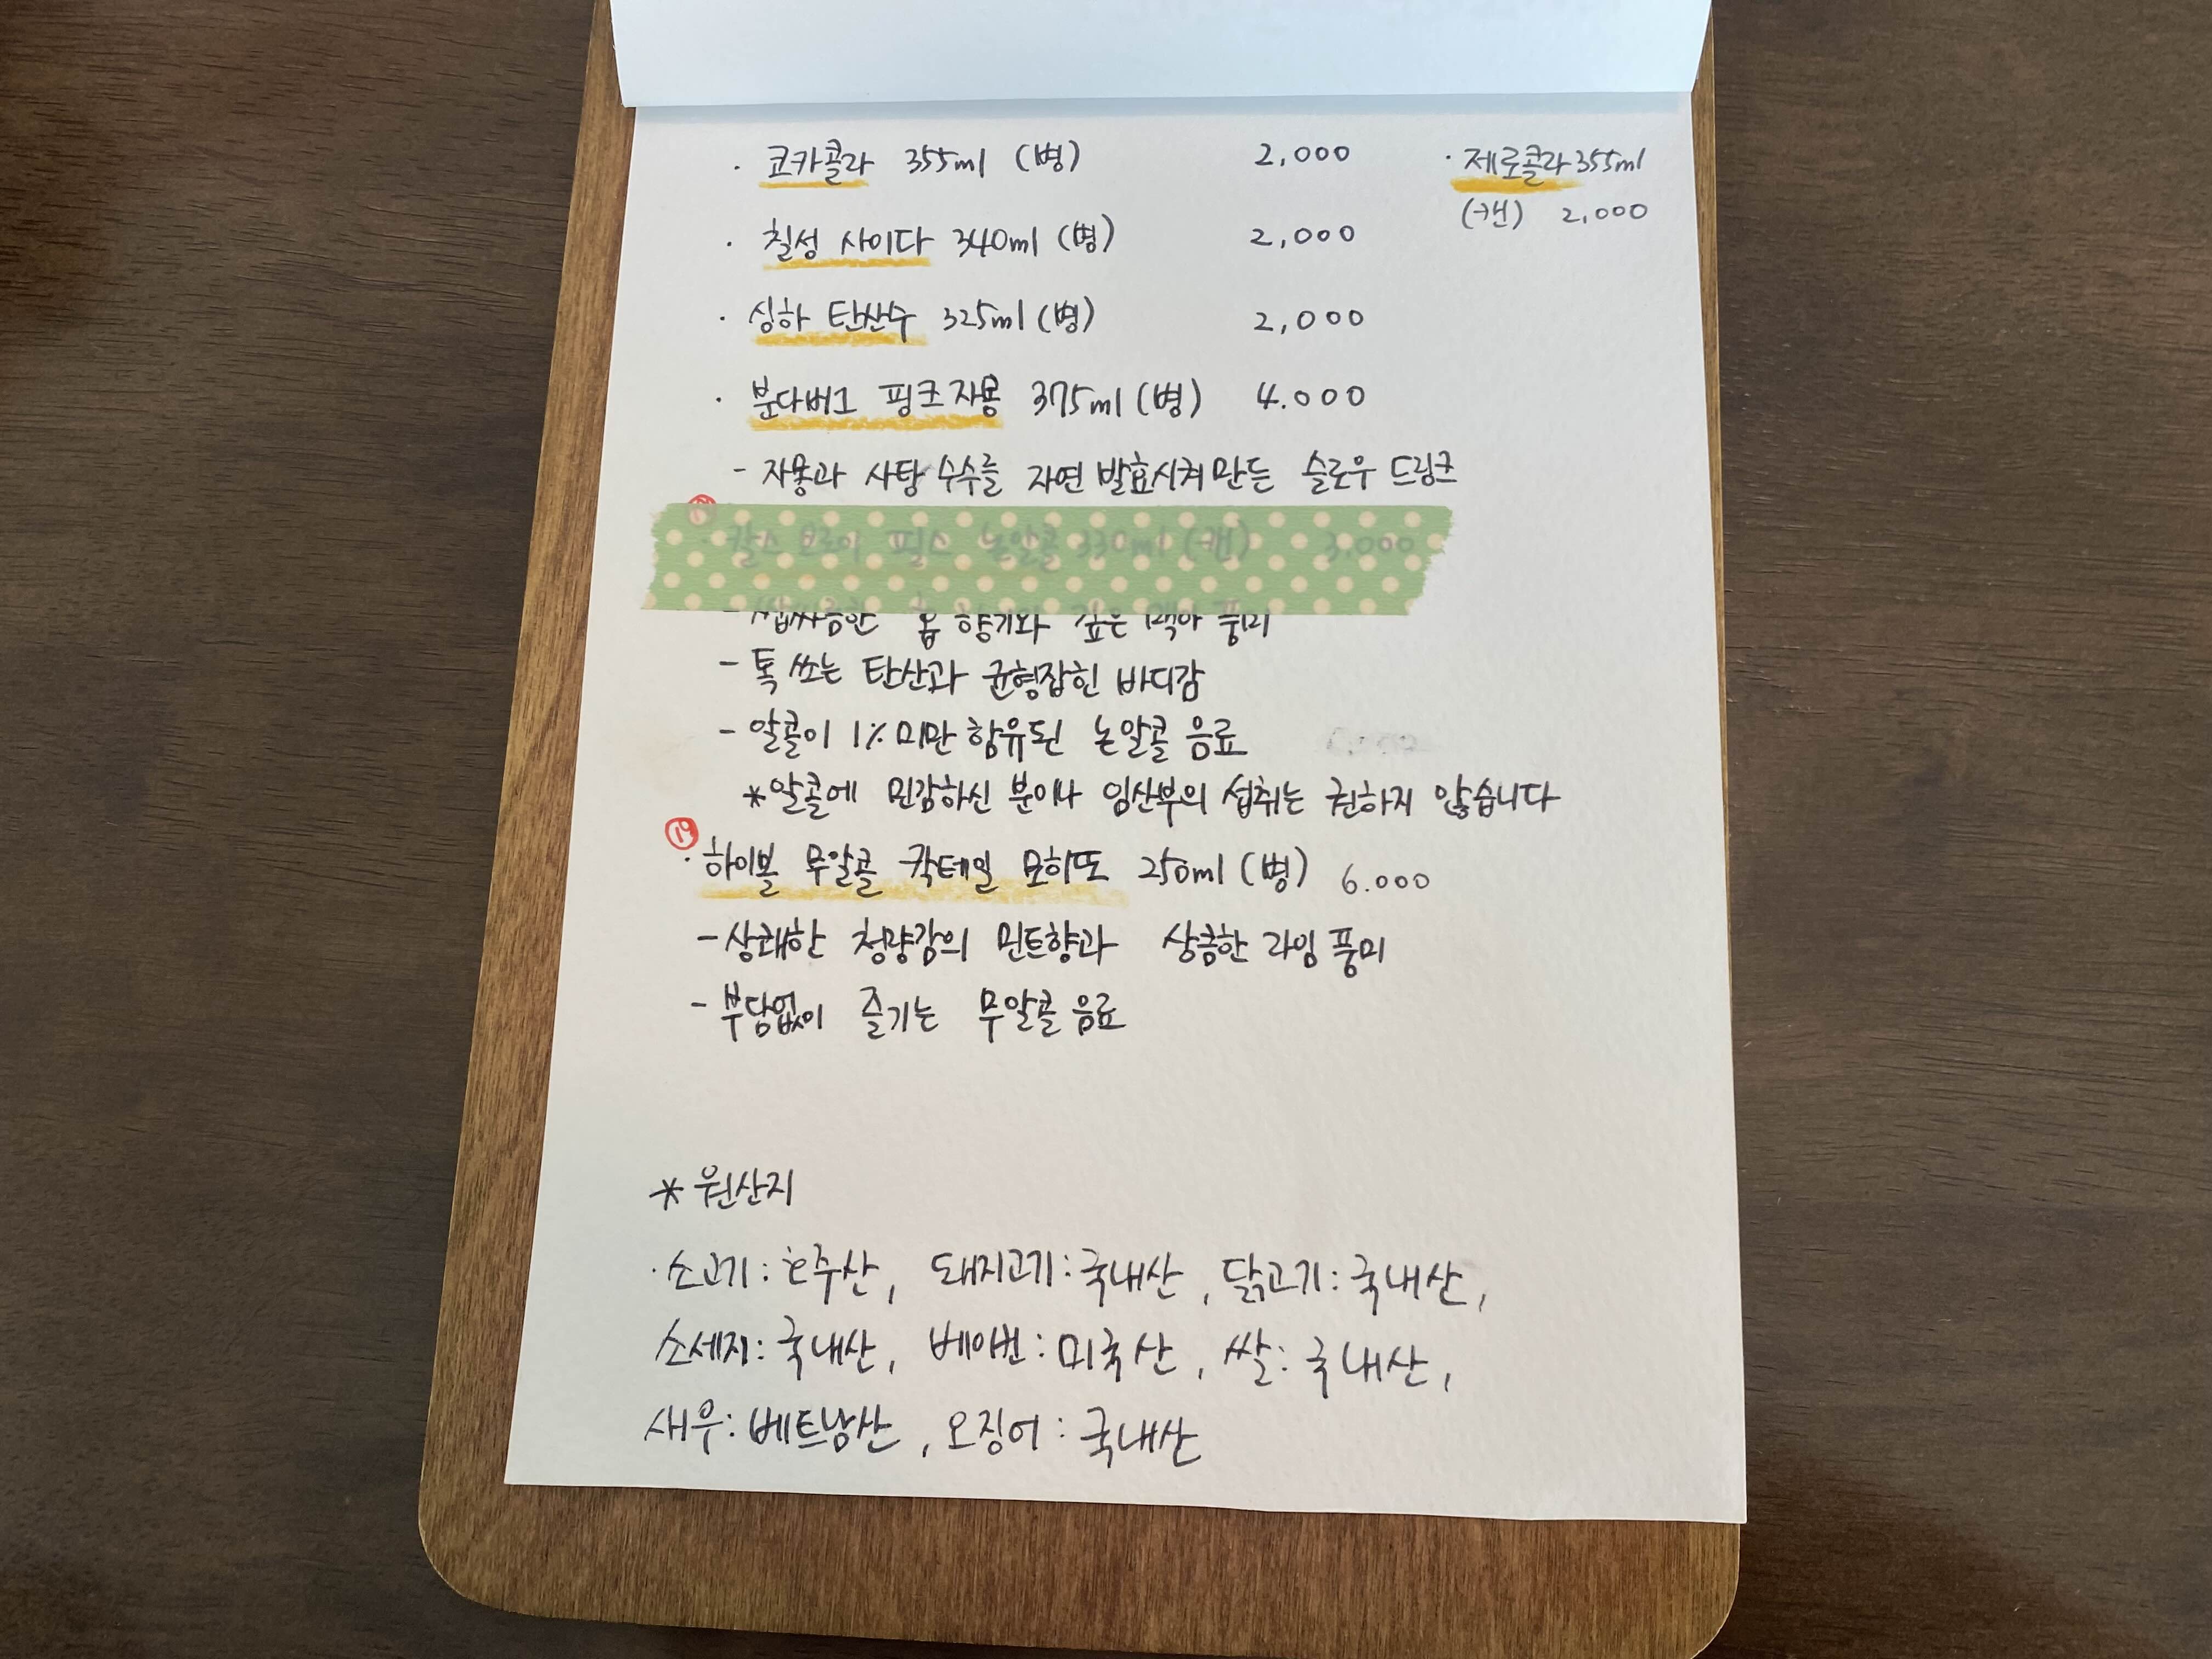 · 코카콜라 355ml (병) 2,000
· 제로콜라 355ml
(캔) 2,000
· 칠성 사이다 340ml (병) 2,000
· 싱하 탄산수 325ml (병) 2,000
· 분다버그 핑크자몽 375ml (병) 4.000
- 자몽과 사탕수수를 자연 발효시켜 만든 슬로우 드링크
19
· 칼스 필스 논알콜 330ml (캔) 3,000
- 쌉싸름한 홉 향기와 깊은 맥아 풍미
- 톡 쏘는 탄산과 균형잡힌 바디감
- 알콜이 1% 미만 함유된 논알콜 음료
*알콜에 민감하신 분이나 임산부의 섭취는 권하지 않습니다
19
· 하이볼 무알콜 칵테일 모히또 250ml (병) 6.000
- 상쾌한 청량감의 민트향과 상큼한 라임 풍미
- 부담없이 즐기는 무알콜 음료
* 원산지
· 소고기: 호주산, 돼지고기: 국내산, 닭고기: 국내산,
소세지: 국내산, 베이컨: 미국산, 쌀: 국내산,
새우: 베트남산, 오징어: 국내산